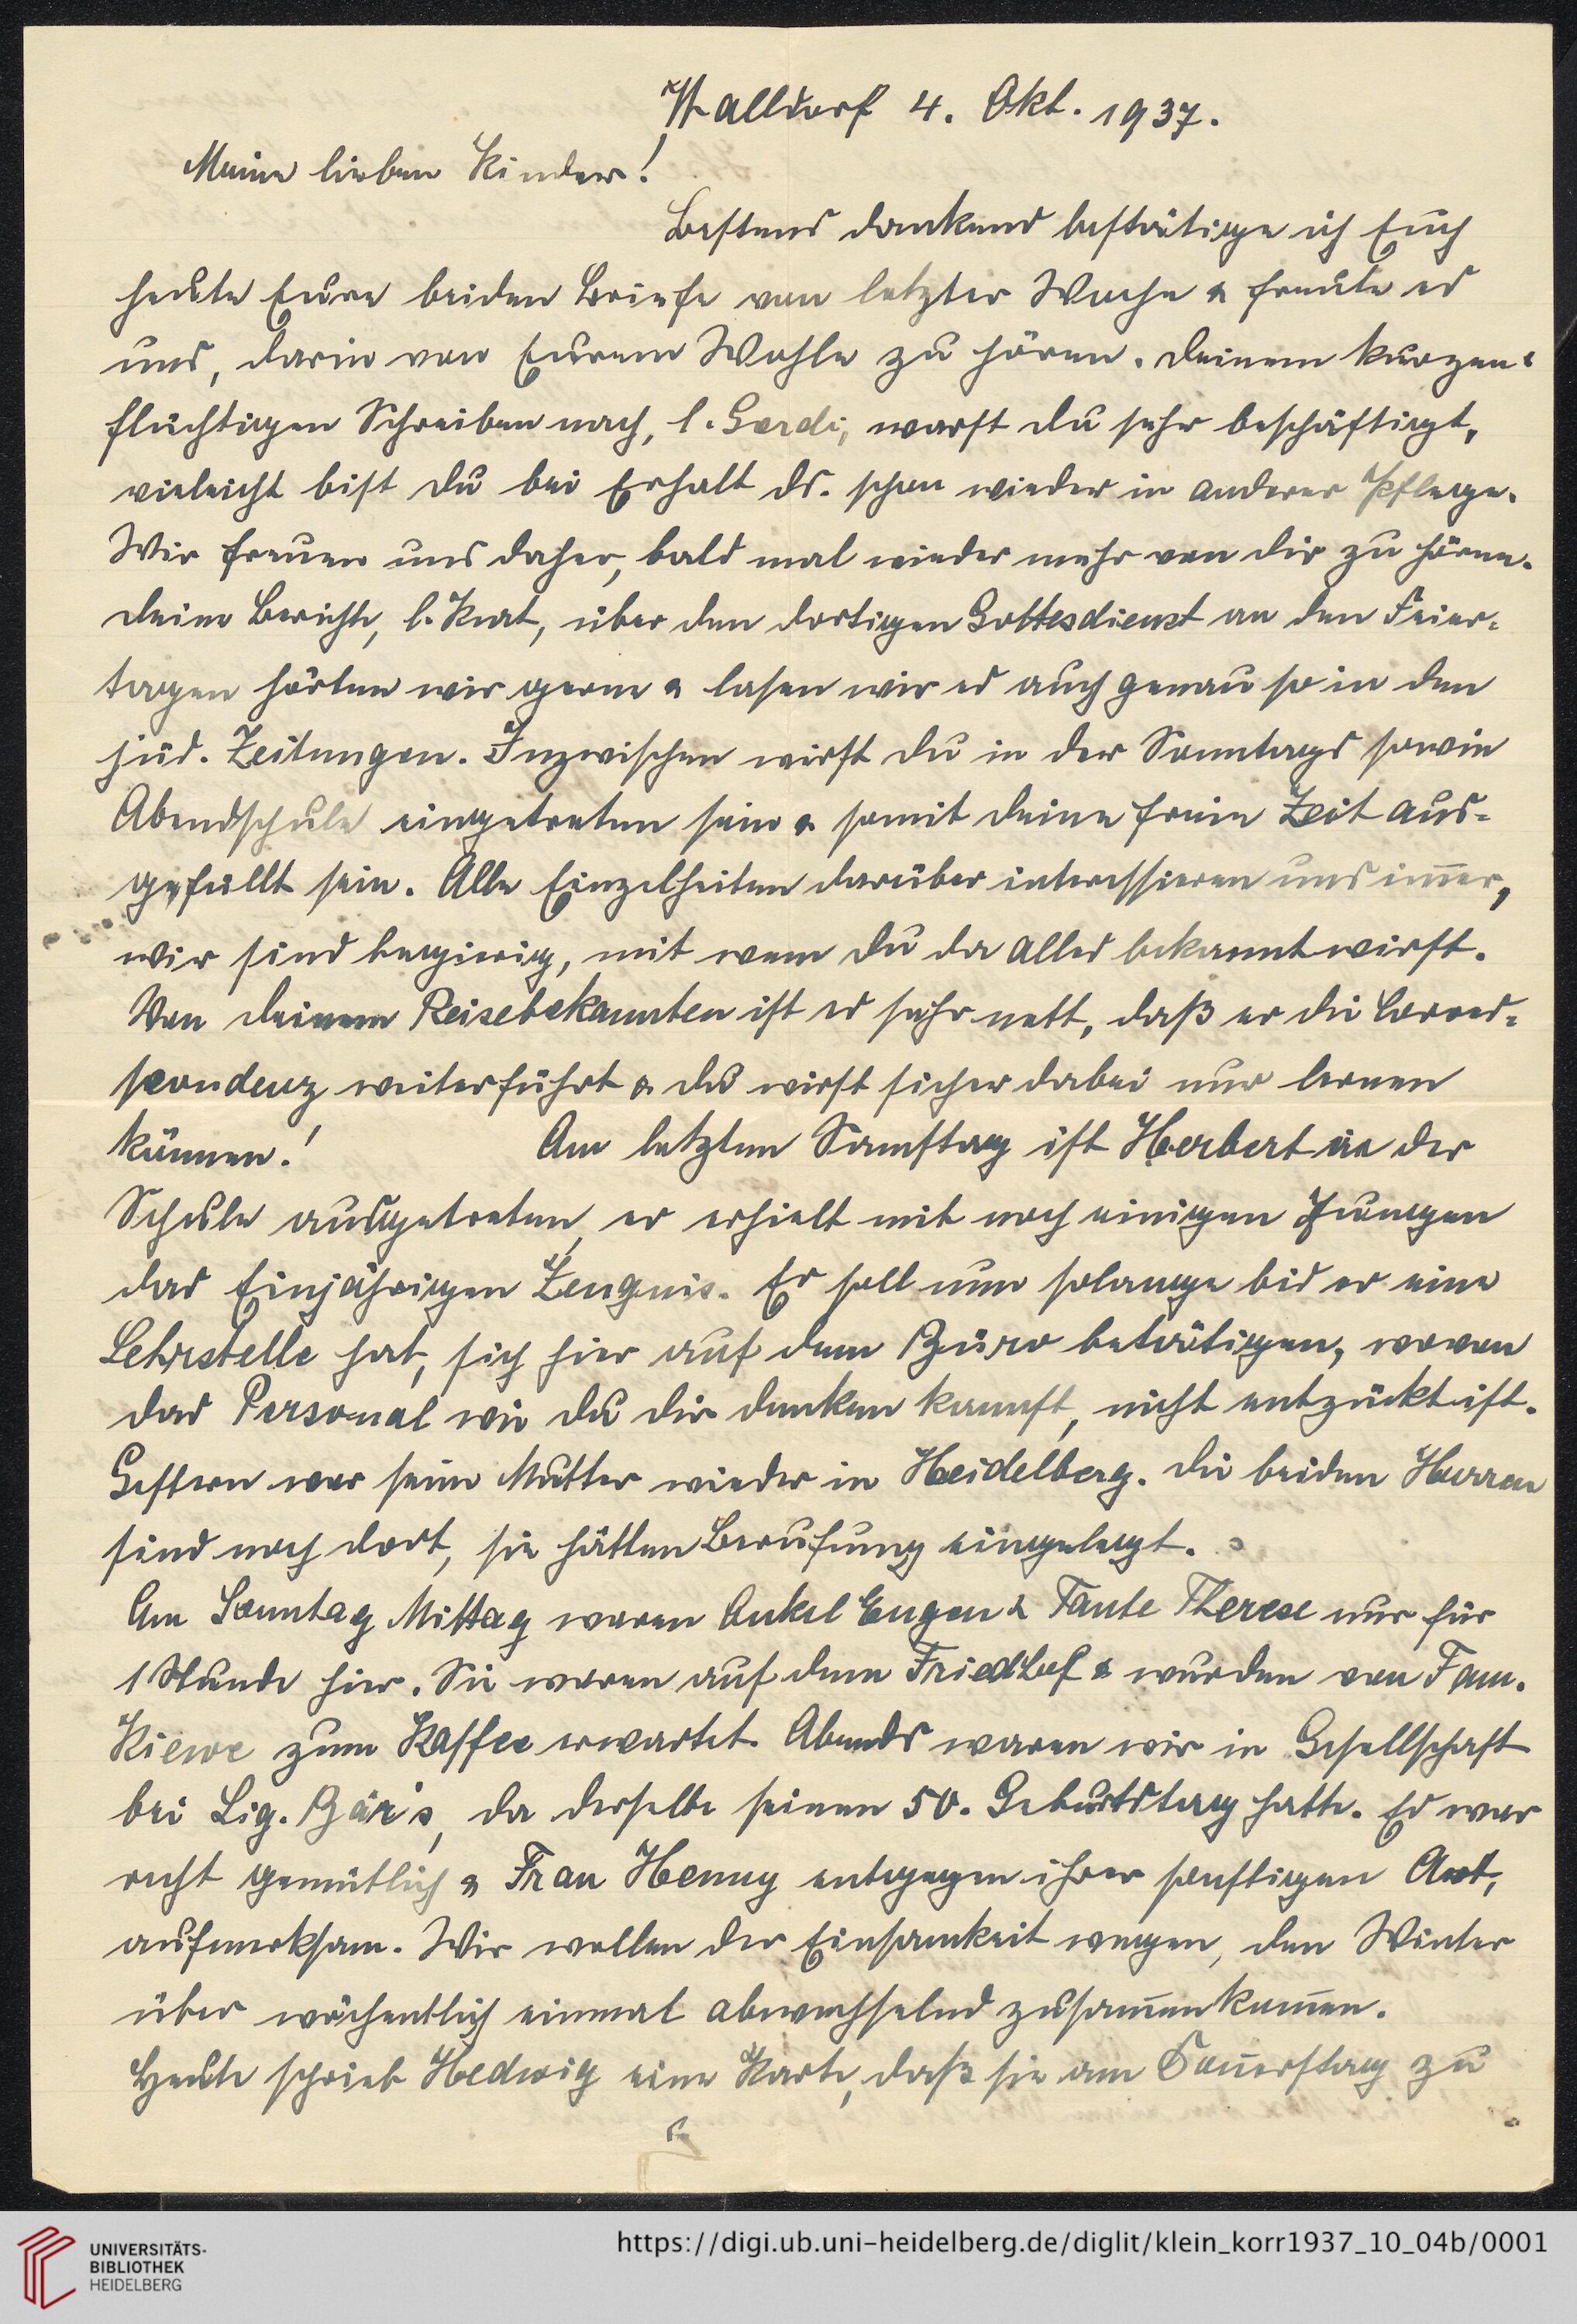 Walldorf 4. Okt. 1937.
Meine lieben Kinder!
Bestens dankend bestätige ich Euch
heute Eure beiden Briefe von letzter Woche & freute es
uns, darin von Eurem Wohle zu hören. Deinem kurzen &
flüchtigen Schreiben nach, l. Gerdi, warst Du sehr beschäftigt,
vieleicht bist Du bei Erhalt ds. schon wieder in anderer Pflege.
Wir freuen uns daher, bald mal wieder mehr von Dir zu hören.
Deine Berichte, l. Kurt, über den dortigen Gottesdienst an den Feier-
tagen hörten wir gerne & lasen wir es auch genau so in den
jüd. Zeitungen. Inzwischen wirst Du in der Sonntags sowie
Abendschule eingetreten sein & somit Deine freie Zeit aus-
gefüllt sein. Alle Einzelheiten darüber interessieren uns im̄er,
wir sind begierig, mit wem Du da alles bekannt wirst.
Von Deinem Reisebekannten ist es sehr nett, daß er die Corres-
pondenz weiterführt & Du wirst sicher dabei nur lernen
können! Am letzten Samstag ist Herbert in der
Schule ausgetreten, er erhielt mit noch einigen Jungen
das Einjährigen Zeugnis. Er soll nun solange bis er eine
Lehrstelle hat, sich hier auf dem Büro betätigen, wovon
das Personal wie Du Dir denken kannst, nicht entzückt ist.
Gestern war seine Mutter wieder in Heidelberg. Die beiden Herren
sind noch dort, sie hätten Berufung eingelegt.
Am Sonntag Mittag waren Onkel Eugen & Tante Therese nur für
1 Stunde hier. Sie waren auf dem Friedhof & wurden von Fam.
Kiewe zum Kaffee erwartet. Abends waren wir in Gesellschaft
bei Sig. Bär's, da derselbe seinen 50. Geburtstag hatte. Es war
recht gemütlich & Frau Henny entgegen ihrer sonstigen Art,
aufmerksam. Wir wollen der Einsamkeit wegen, den Winter
über wöchentlich einmal abwechselnd zusam̄enkom̄en.
Heute schrieb Hedwig eine Karte, daß sie am Don̄erstag zu
UNIVERSITÄTS-
BIBLIOTHEK
HEIDELBERG
https://digi.ub.uni-heidelberg.de/diglit/klein_korr1937_10_04b/0001